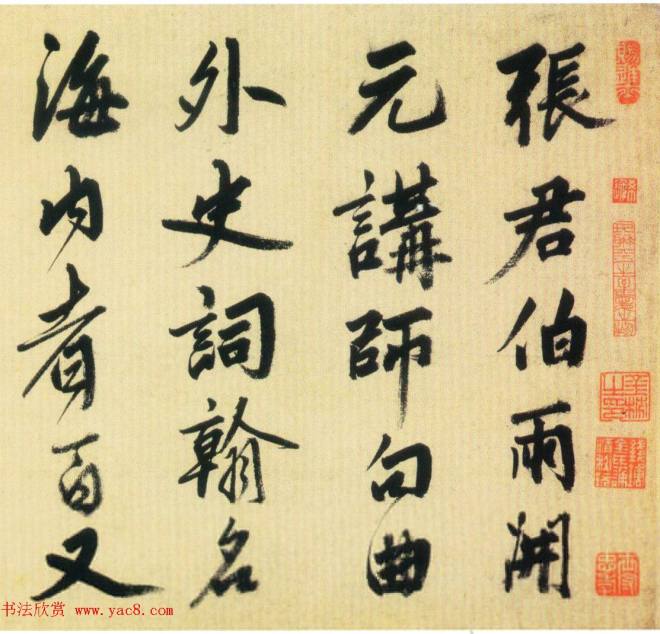 張君伯雨開
元講師句曲
外史詞翰名
海内者百又
书法欣赏 www.yac8.com